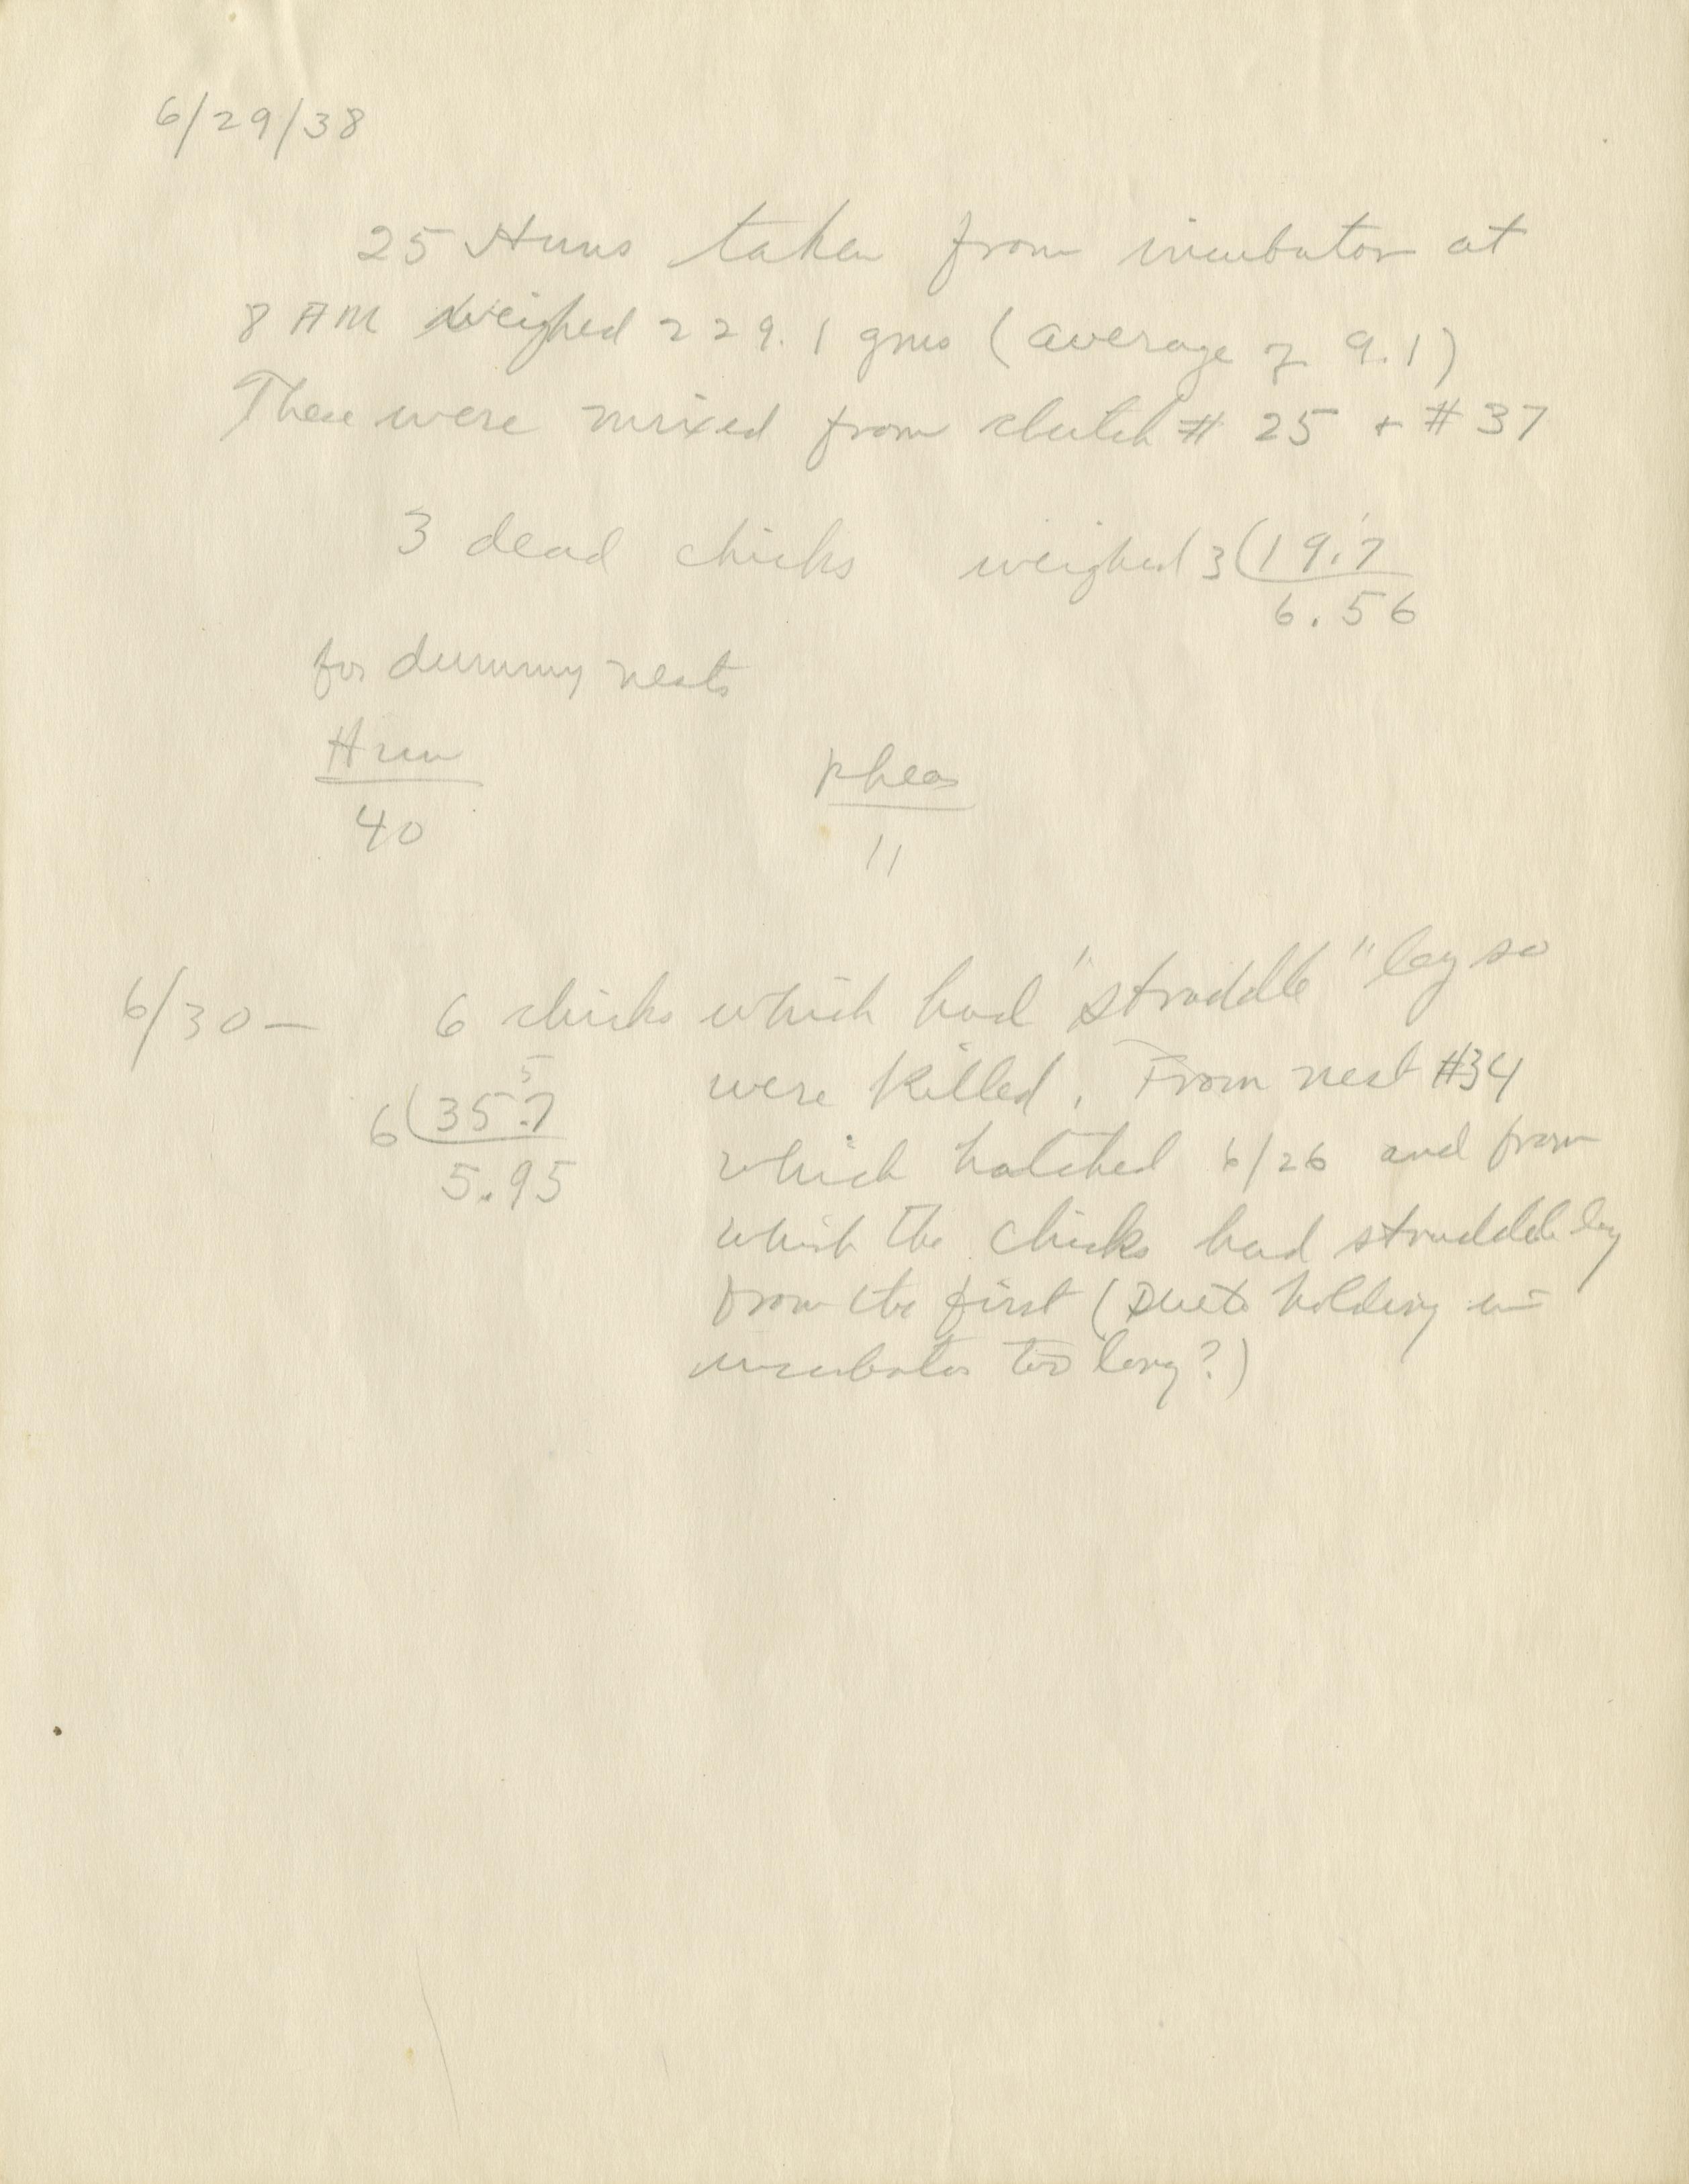 6/29/38
25 Huns taken from incubator at
8 AM weighed 229.1 gms (average of 9.1)
These were mixed from clutch # 25 + # 37
3 dead chicks weighed 3(19.7
6.56
for dummy nests
Hun
40
Pheas
11
6/30 - 6 chicks which had "straddle" leg so
were killed. From nest #34
which hatched 6/26 and from
which the chicks had straddle leg
from the first (Due to holding in
incubator too long?)
5
6(35.7
5.95